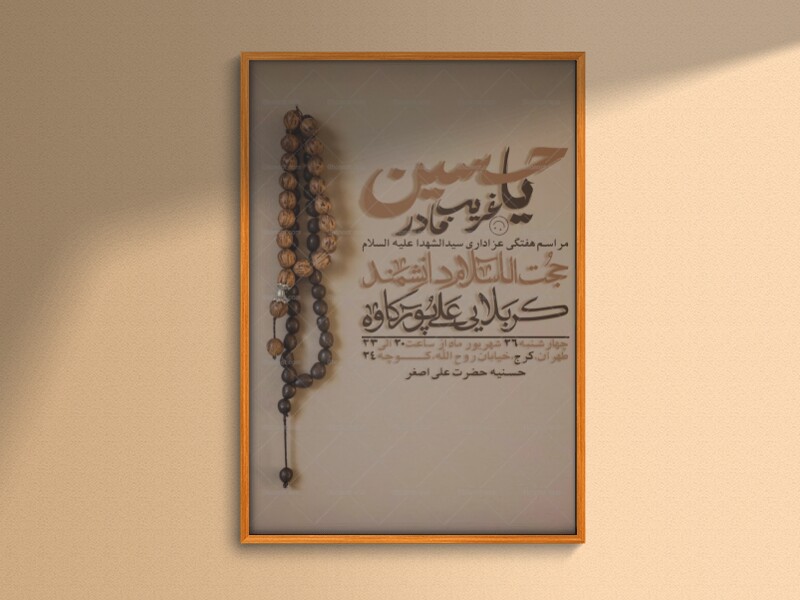 یا حسین
غریب مادر
مراسم هفتگی عزاداری سیدالشهدا علیه السلام
حجت الاسلام دانشمند
کربلایی علی پورکاوه
چهارشنبه ۲۶ شهریور ماه از ساعت ۲۰ الی ۲۳
طهران، کرج، خیابان روح الله، کوچه ۳۴
حسنیه حضرت علی اصغر